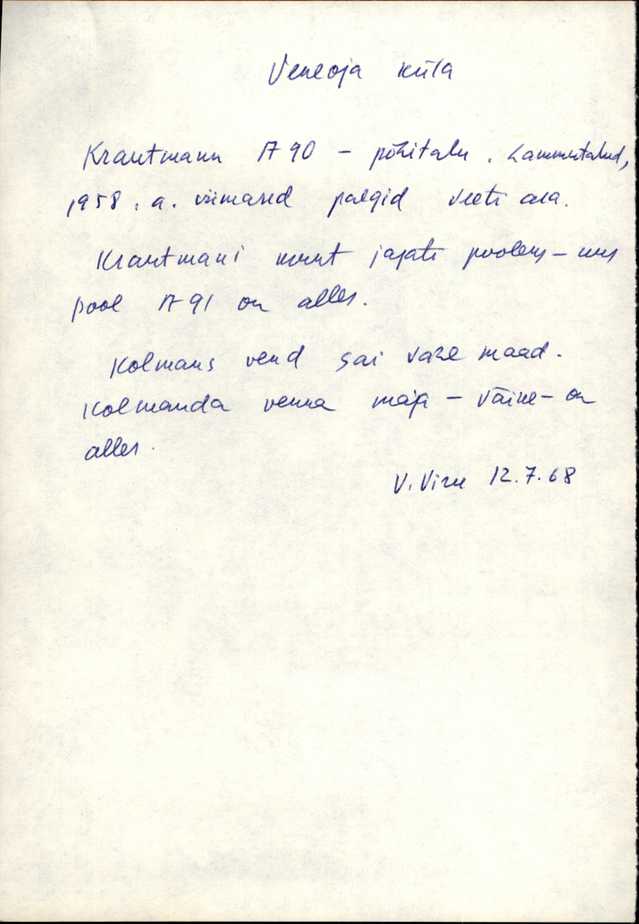 Veneoja küla
Krautmann A 90 – põhitalu. Lammutatud,
1958. a. viimased palgid veeti ära.
Krautmani jagati pooleks – uus
pool A 91 on alles.
Kolmas vend sai maad.
Kolmanda venna maja – väike – on
alles.
V. Viru 12.7.68